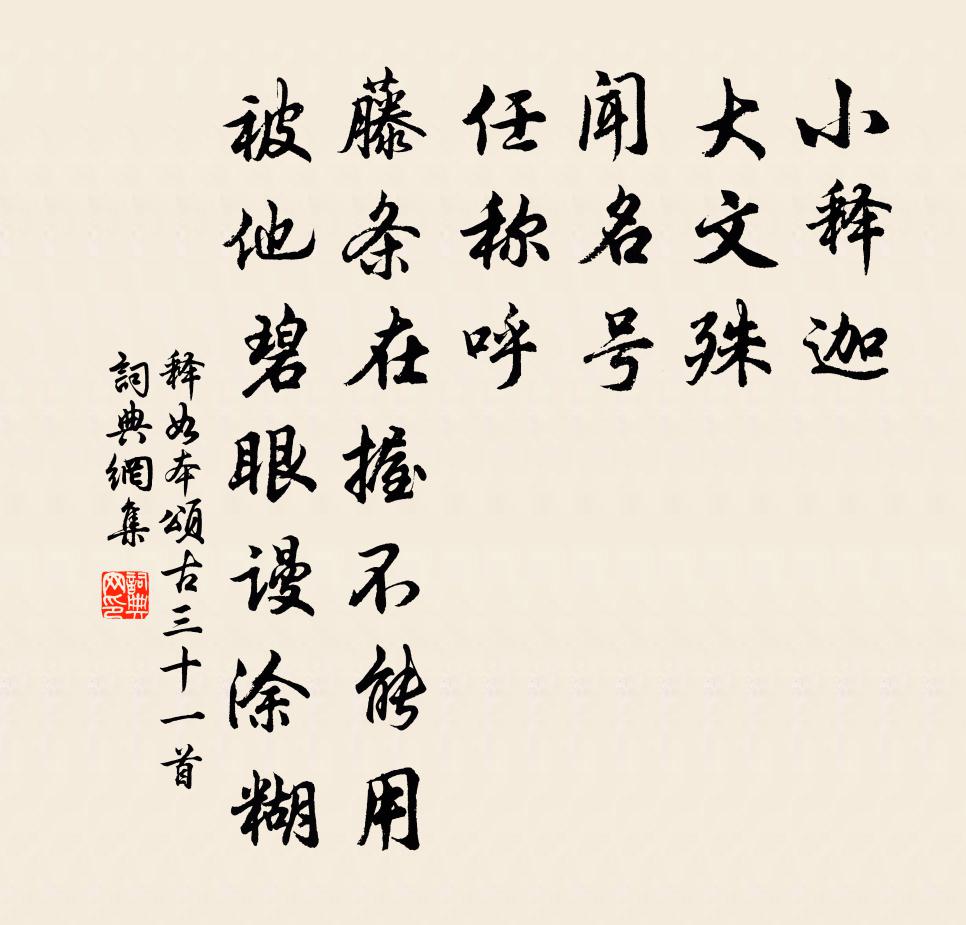 小释迦
大文殊
闻名号
任称呼
藤条在握不能用
被他碧眼谩涂糊
释如本颂古三十一首
詞典網集
詞典网印